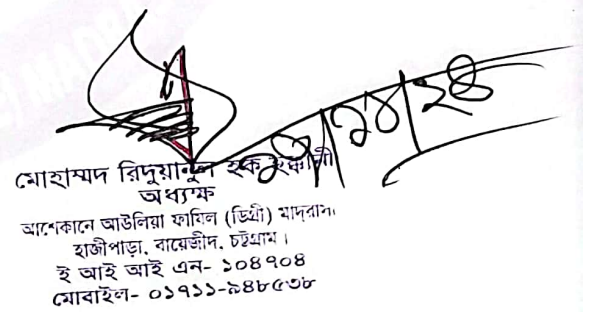 মোহাম্মদ রিদুয়ানুল হক হক্কানী
অধ্যক্ষ
আশেকানে আউলিয়া ফাযিল (ডিগ্রী) মাদ্‌রাসা
হাজীপাড়া, বায়েজীদ, চট্টগ্রাম।
ই আই আই এন- ১০৪৭০৪
মোবাইল- ০১৭১১-৯৪৮৫৩৮